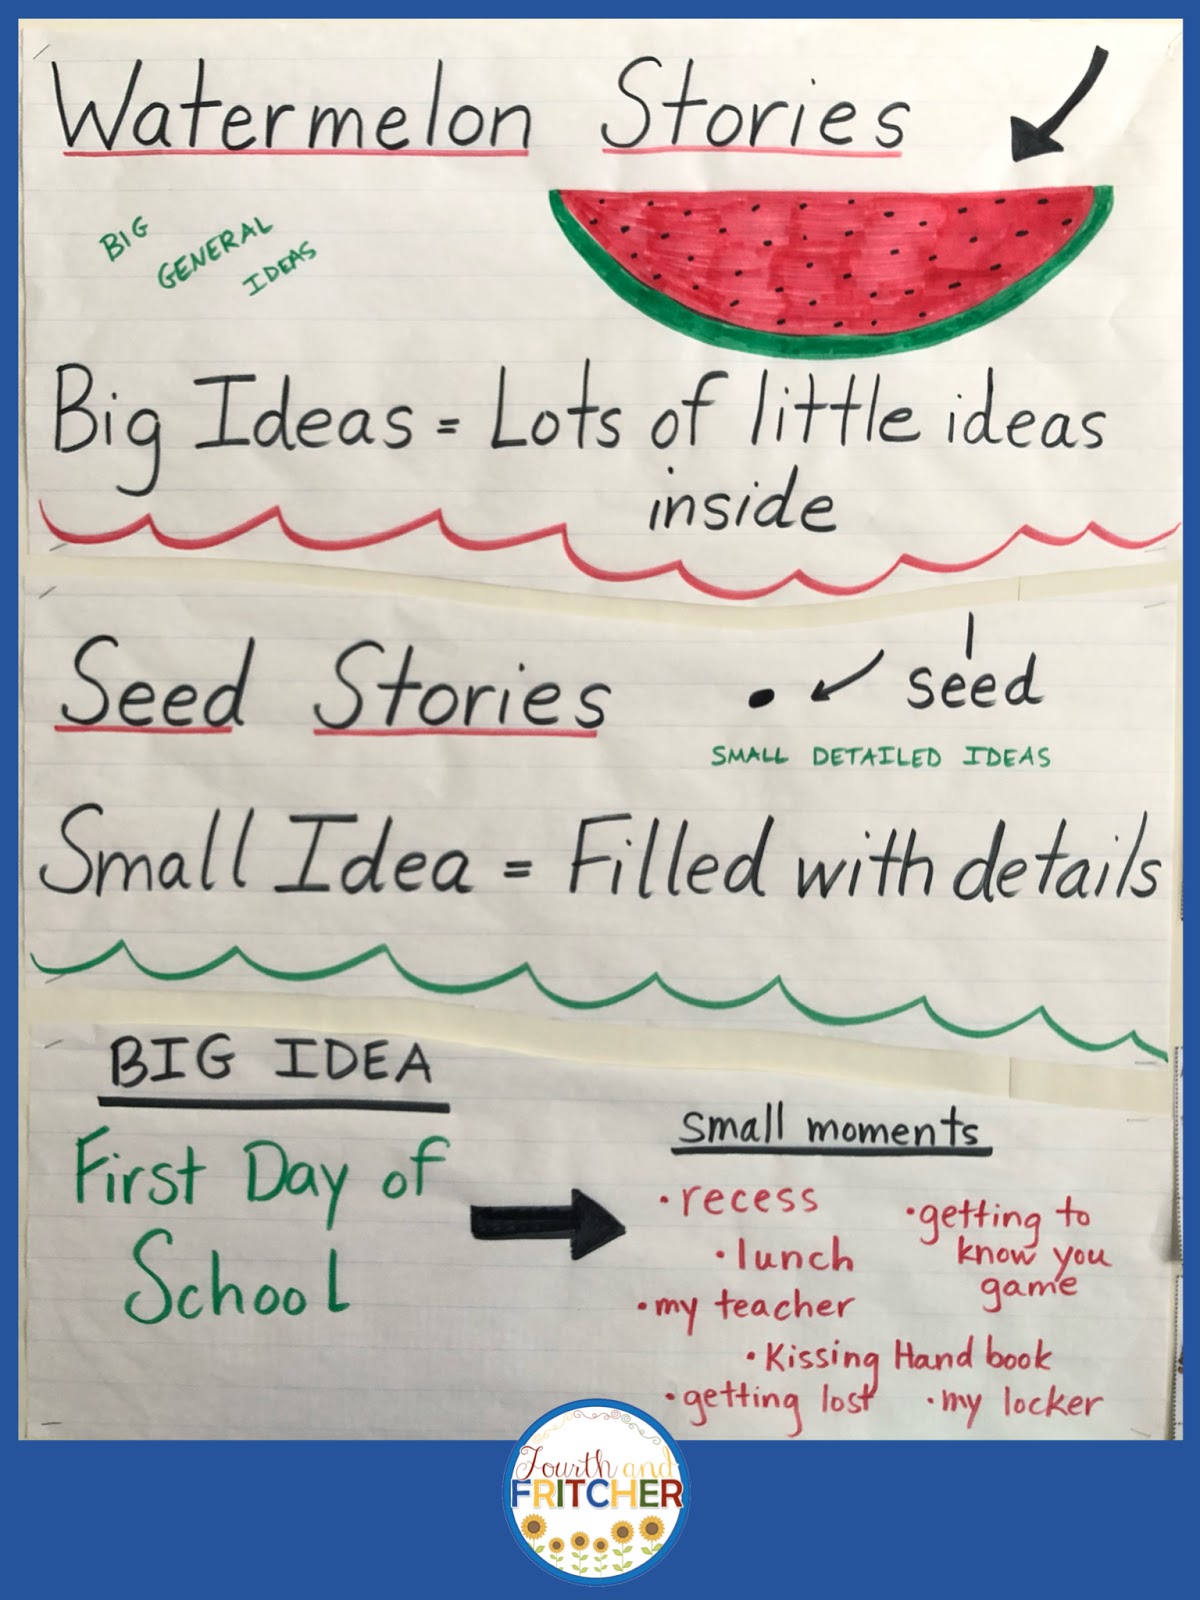 Watermelon Stories
BIG
GENERAL
IDEAS
Big Ideas = Lots of little ideas
inside
Seed Stories
seed
SMALL DETAILED IDEAS
Small Idea = Filled with details
BIG IDEA
First Day of
School
small moments
• recess
• getting to
know you
game
• lunch
• my teacher
• Kissing Hand book
• getting lost
• my locker
Fourth and
FRITCHER